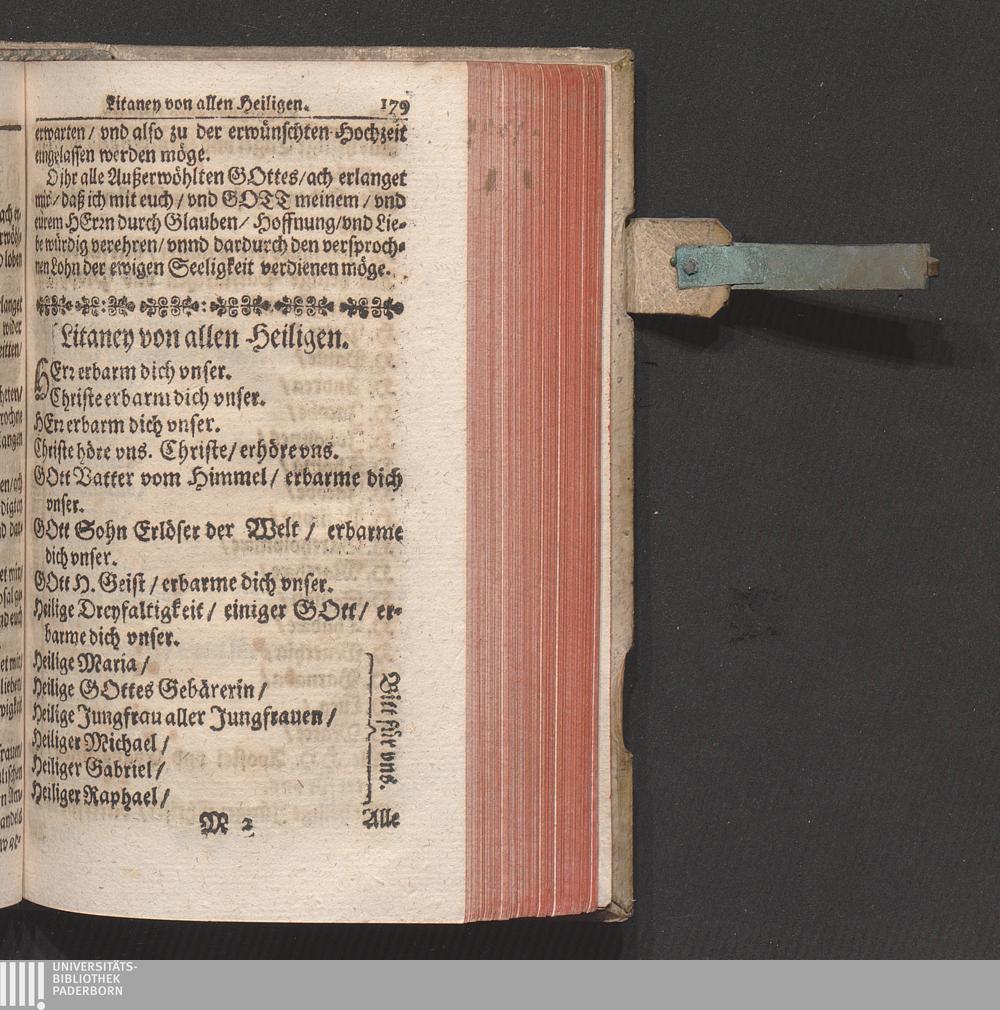 Litaney von allen Heiligen. 179
erwarten / vnd also zu der erwünschten Hochzeit
eingelassen werden möge.
O ihr alle Außerwöhlten GOttes / ach erlanget
mir / daß ich mit euch / vnd GOTT meinem / vnd
eurem HErrn durch Glauben / Hoffnung / vnd Lie-
be würdig verehren / vnnd dardurch den versproch-
nen Lohn der ewigen Seeligkeit verdienen möge.
Litaney von allen Heiligen.
HErr erbarm dich vnser.
Christe erbarm dich vnser.
HErr erbarm dich vnser.
Christe höre vns. Christe / erhöre vns.
GOtt Vatter vom Himmel / erbarme dich
vnser.
GOtt Sohn Erlöser der Welt / erbarme
dich vnser.
GOtt H. Geist / erbarme dich vnser.
Heilige Dreyfaltigkeit / einiger GOtt / er-
barme dich vnser.
Heilige Maria /
Heilige GOttes Gebärerin /
Heilige Jungfrau aller Jungfrauen /
Heiliger Michael /
Heiliger Gabriel /
Heiliger Raphael /
Bitt für vns.
M 2 Alle
UNIVERSITÄTS-
BIBLIOTHEK
PADERBORN